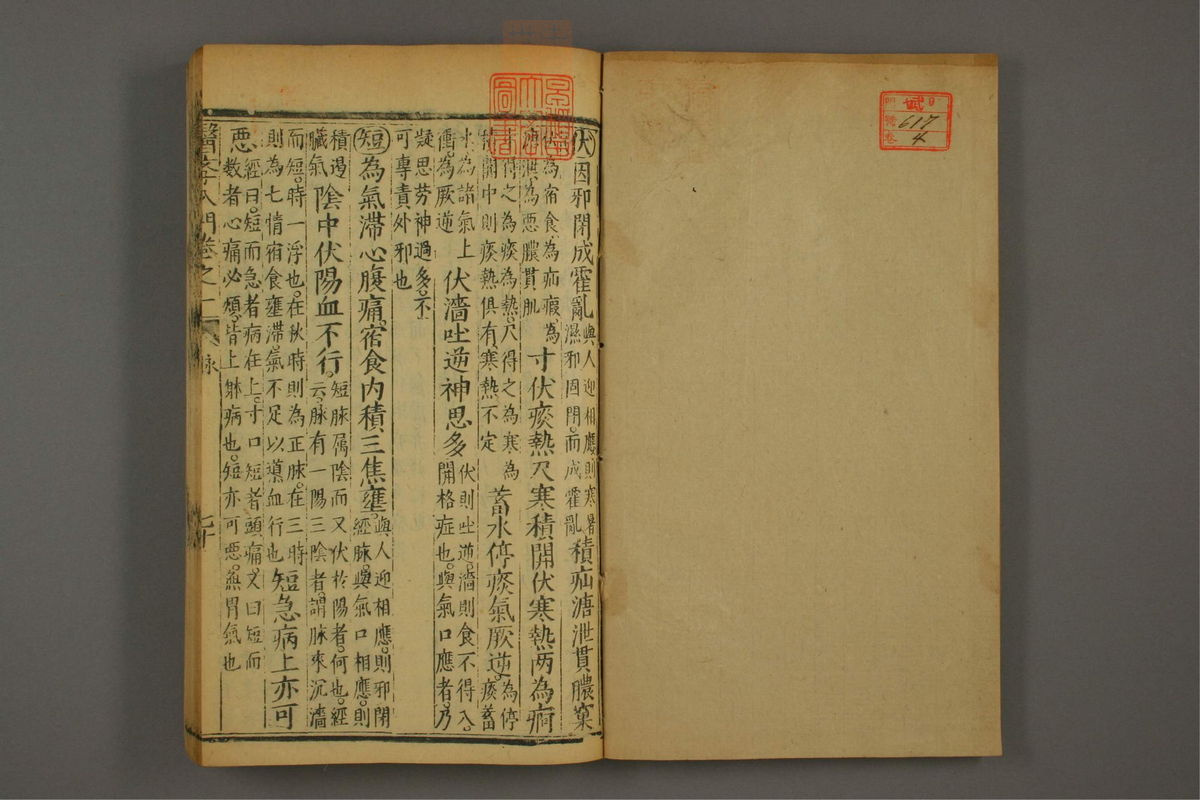 伏因邪閉成霍亂
與人迎相應則寒暑
濕邪固閉而成霍亂
積疝溏泄貫膿窠
為宿食為疝瘕為
為惡膿貫肌
寸伏痰熱尺寒積關伏寒熱兩為痾
得之為痰為熱尺得之為寒為
積關中則痰熱俱有寒熱不定
蓄水停痰氣厥逆
為停
痰蓄
水為諸氣上
衝為厥逆
伏濇吐逆神思多
伏則吐逆濇則食不得入
關格症也與氣口應者乃
疑思勞神過多不
可專責外邪也
短為氣滯心腹痛宿食内積三焦壅
與人迎相應則邪閉
經脉與氣口相應則
積遏
臟氣
陰中伏陽血不行
短脉属陰而又伏於陽者何也經
云脉有一陽三陰者謂脉來沉濇
而短時一浮也在秋時則為正脉在三時
則為七情宿食壅滯氣不足以導血行也
短急病上亦可
惡
經曰短而急者病在上寸口短者頭痛又曰短而
數者心痛必煩皆上部病也短亦可惡無胃氣也
醫學入門卷之一
脉
七十
圖書
617
4